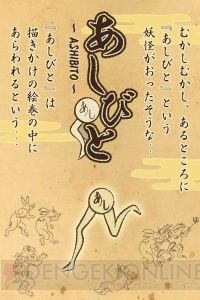 むかしむかし、あるところに
『あしびと』という
妖怪がおったそうな…
あしびと
～ASHIBITO～
『あしびと』は
描きかけの絵巻の中に
あらわれるという…
あし
あし
DENGEKIONLINE